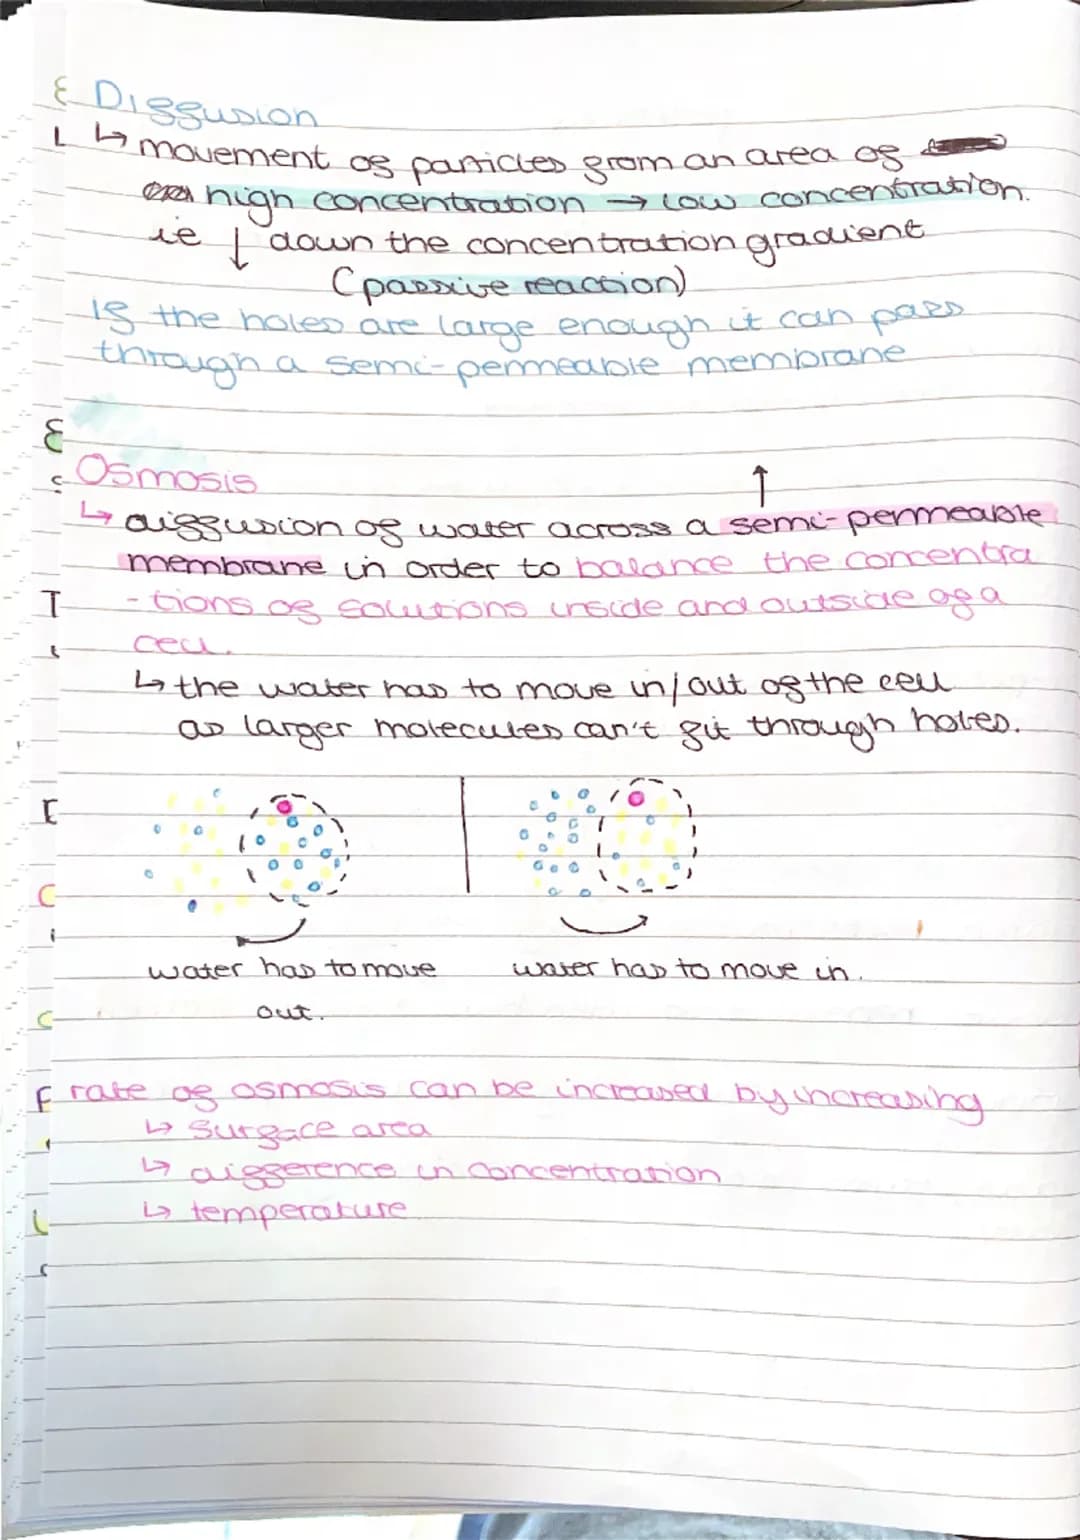 Diffusion
↳ movement of particles from an area of
high concentration → low concentration.
ie ↓ down the concentration gradient
(passive reaction)
If the holes are large enough it can pass
through a semi-permeable membrane
Osmosis
↑
↳ diffusion of water across a semi-permeable
membrane in order to balance the concentra
-tions of solutions inside and outside of a
cell.
↳ the water has to move in/out of the cell
as larger molecules can't fit through holes.
water has to move
out.
water has to move in.
rate of osmosis can be increased by increasing
↳ surface area
↳ difference in concentration
↳ temperature